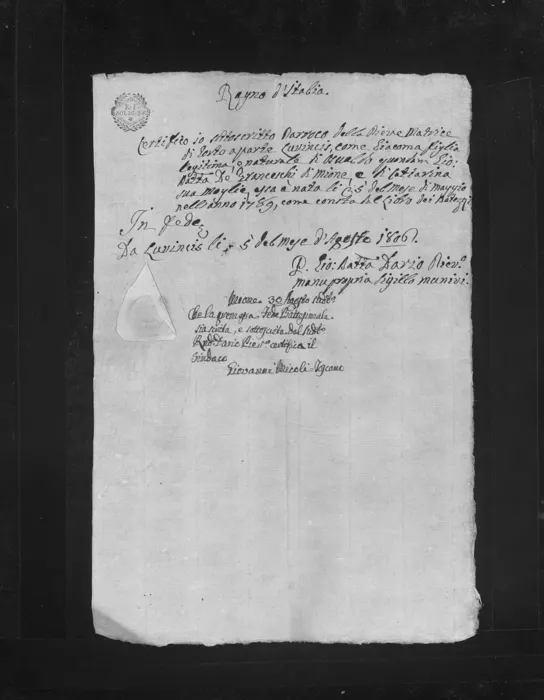 Regno d'Italia.
Certifico io sottoscritto Parroco della Pieve Matrice
di Gorto a parte Luvincis, come Giacoma figlia
legitima, e naturale di Osualdo quondam Gio:
Batta De Franceschi di Mione, e di Cattarina
sua moglie, essa è nata li 25 del mese di maggio
nell'anno 1789, come consta dal Libro dei Battezzi
In Fede
Da Luvincis li 5 del mese d'Agosto 1806.
P. Gio: Batta Dario Piev.
manu propria sigillo munivi.
Che la premessa Fede Battesimale
sia scritta, e sottoscritta dal sudto
Rndo Dario Pievno certifica il
Sindaco
Giovanni Micoli